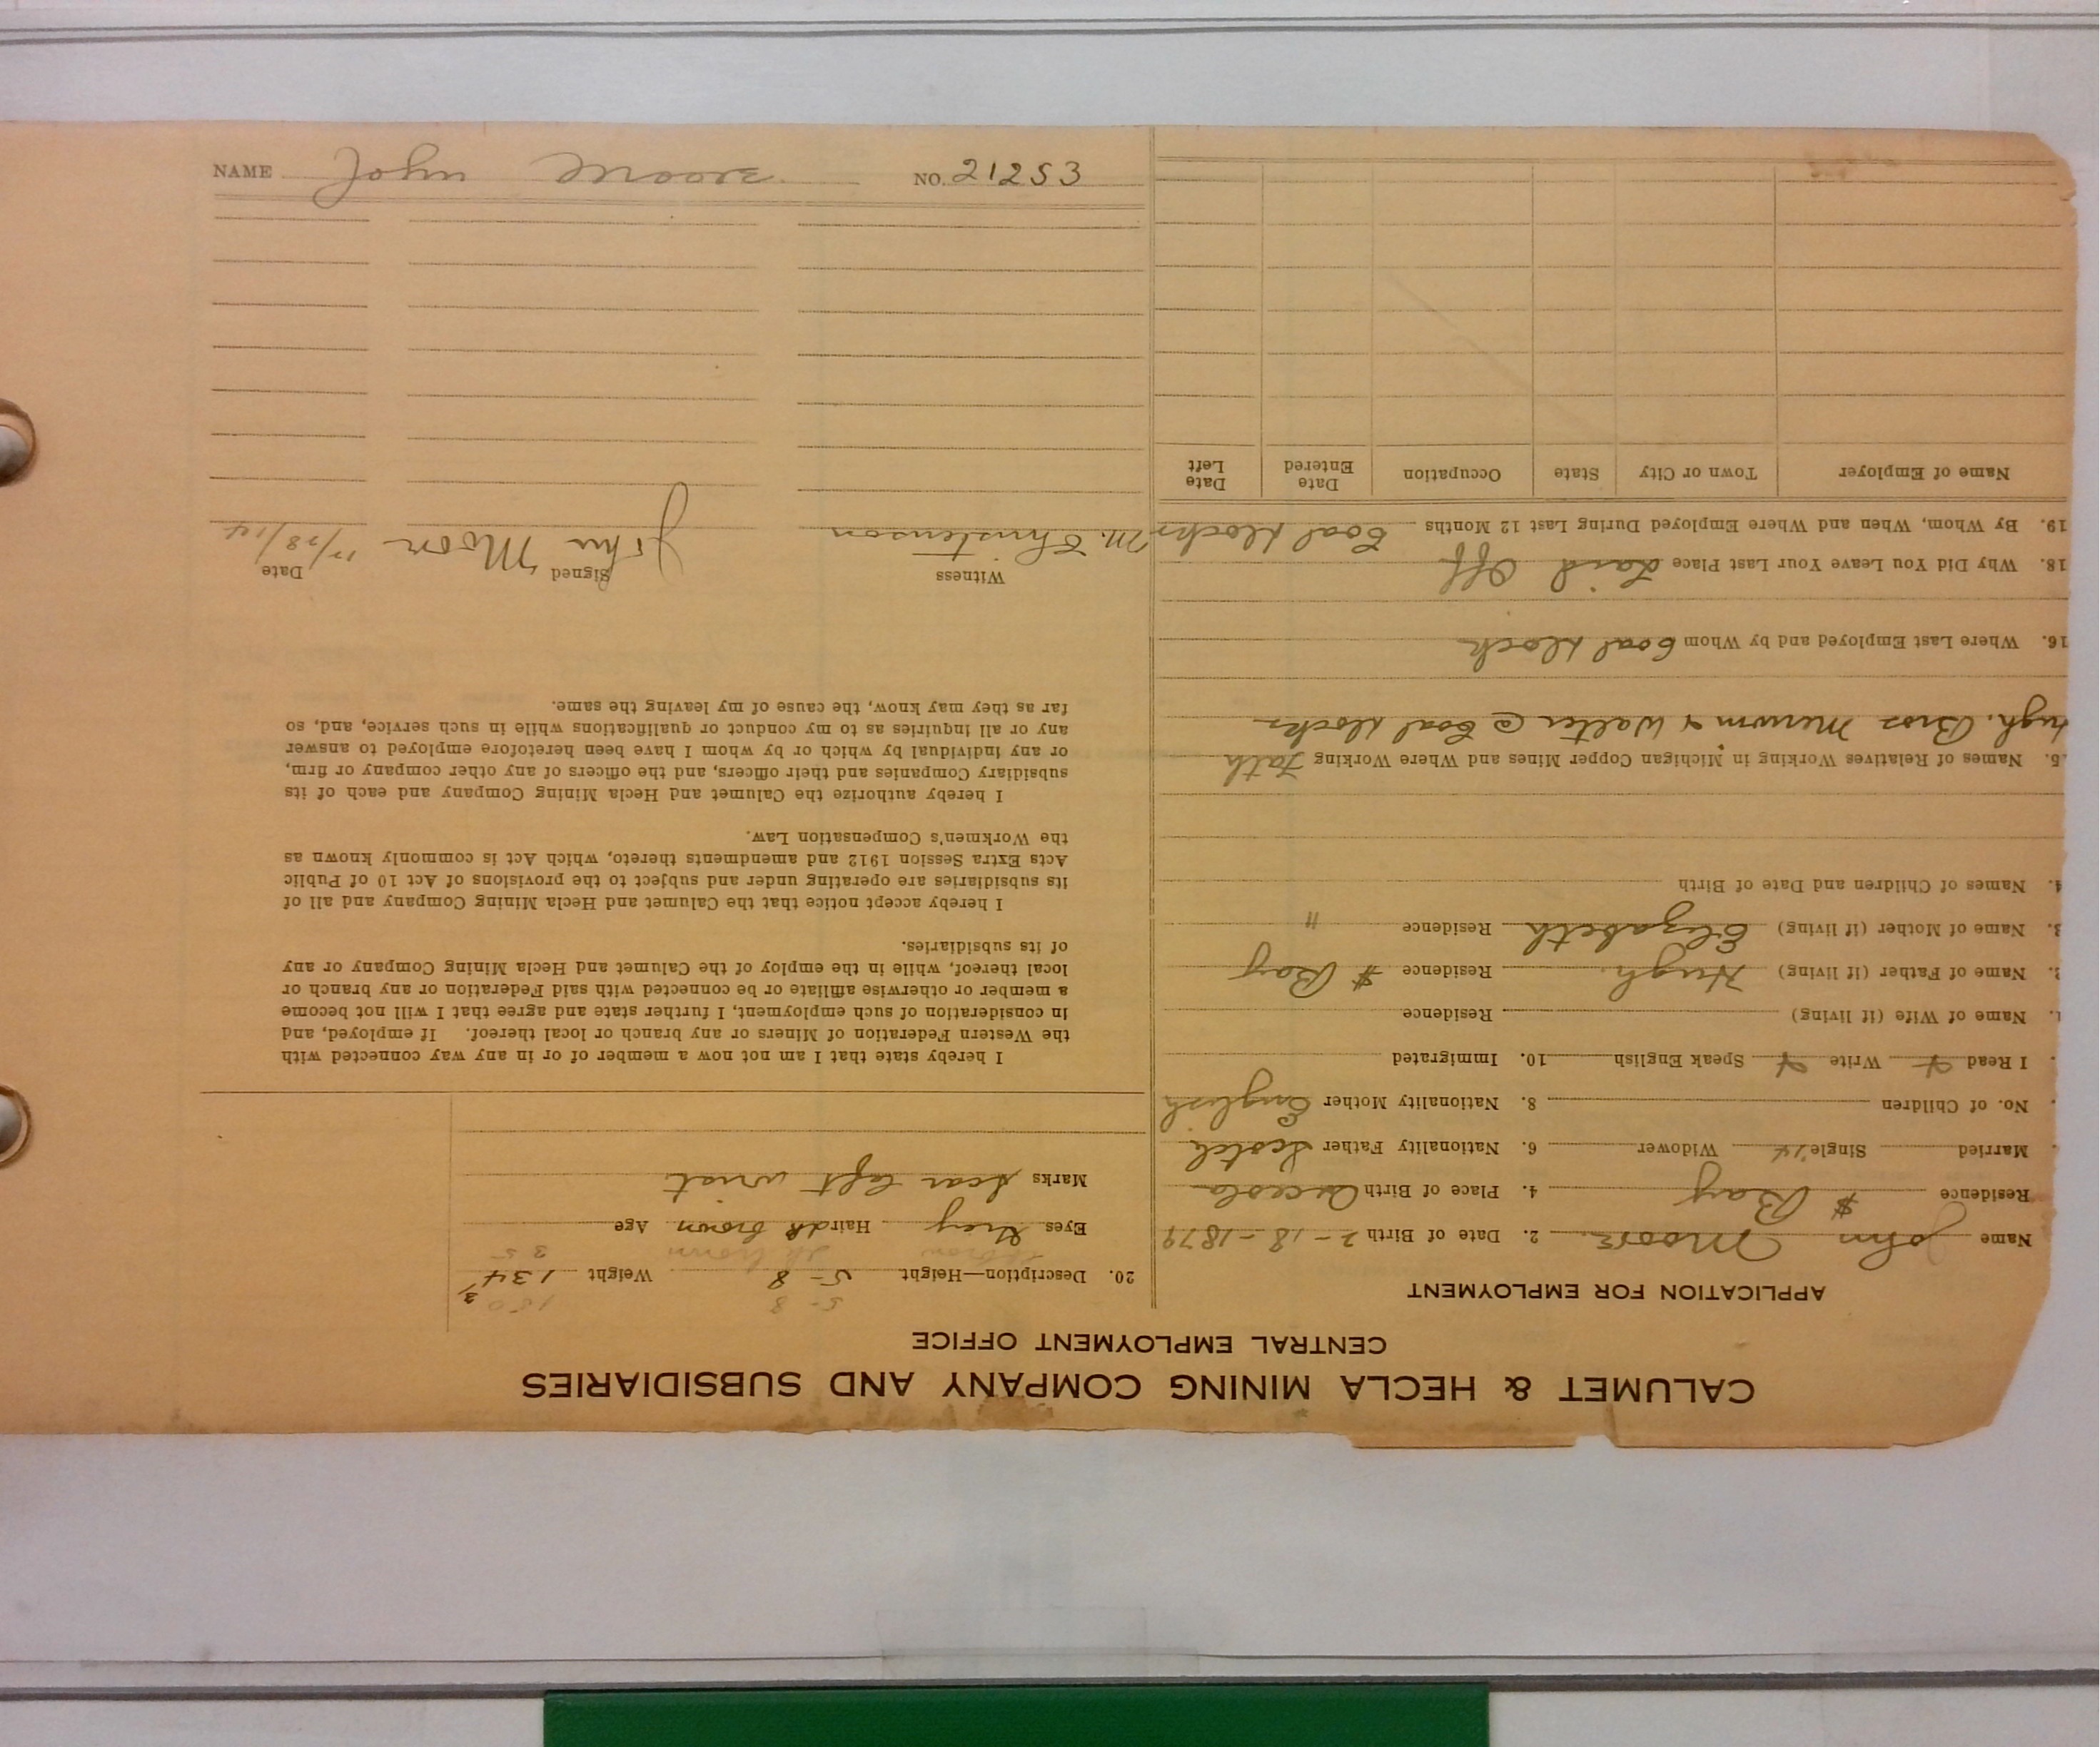 CALUMET & HECLA MINING COMPANY AND SUBSIDIARIES
CENTRAL EMPLOYMENT OFFICE
APPLICATION FOR EMPLOYMENT
Name John Moore 2. Date of Birth 2-18-1879
Residence # Bay 4. Place of Birth Osceola
Married Single Widower 6. Nationality Father Scotch
No. of Children 8. Nationality Mother English
I Read Y Write Y Speak English 10. Immigrated
1. Name of Wife (if living) Residence
2. Name of Father (if living) Hugh Residence # Bay
3. Name of Mother (if living) Elizabeth Residence "
4. Names of Children and Date of Birth
5. Names of Relatives Working in Michigan Copper Mines and Where Working Fath
Hugh. Bros & Walter @ Coal docks
16. Where Last Employed and by Whom Coal dock
18. Why Did You Leave Your Last Place Laid Off
19. By Whom, When and Where Employed During Last 12 Months Coal docks
Name of Employer Town or City State Occupation Date Entered Date Left
5-8 150
20. Description—Height 5-8 Weight 134
dk brown 35
Eyes Grey Hair dk brown Age
Marks Scar left wrist
I hereby state that I am not now a member of or in any way connected with
the Western Federation of Miners or any branch or local thereof. If employed, and
in consideration of such employment, I further state and agree that I will not become
a member or otherwise affiliate or be connected with said Federation or any branch or
local thereof, while in the employ of the Calumet and Hecla Mining Company or any
of its subsidiaries.
I hereby accept notice that the Calumet and Hecla Mining Company and all of
its subsidiaries are operating under and subject to the provisions of Act 10 of Public
Acts Extra Session 1912 and amendments thereto, which Act is commonly known as
the Workmen's Compensation Law.
I hereby authorize the Calumet and Hecla Mining Company and each of its
subsidiary Companies and their officers, and the officers of any other company or firm,
or any individual by which or by whom I have been heretofore employed to answer
any or all inquiries as to my conduct or qualifications while in such service, and, so
far as they may know, the cause of my leaving the same.
Witness Signed Date
M. Christenson John Moore 12/28/14
NAME John Moore NO. 21253